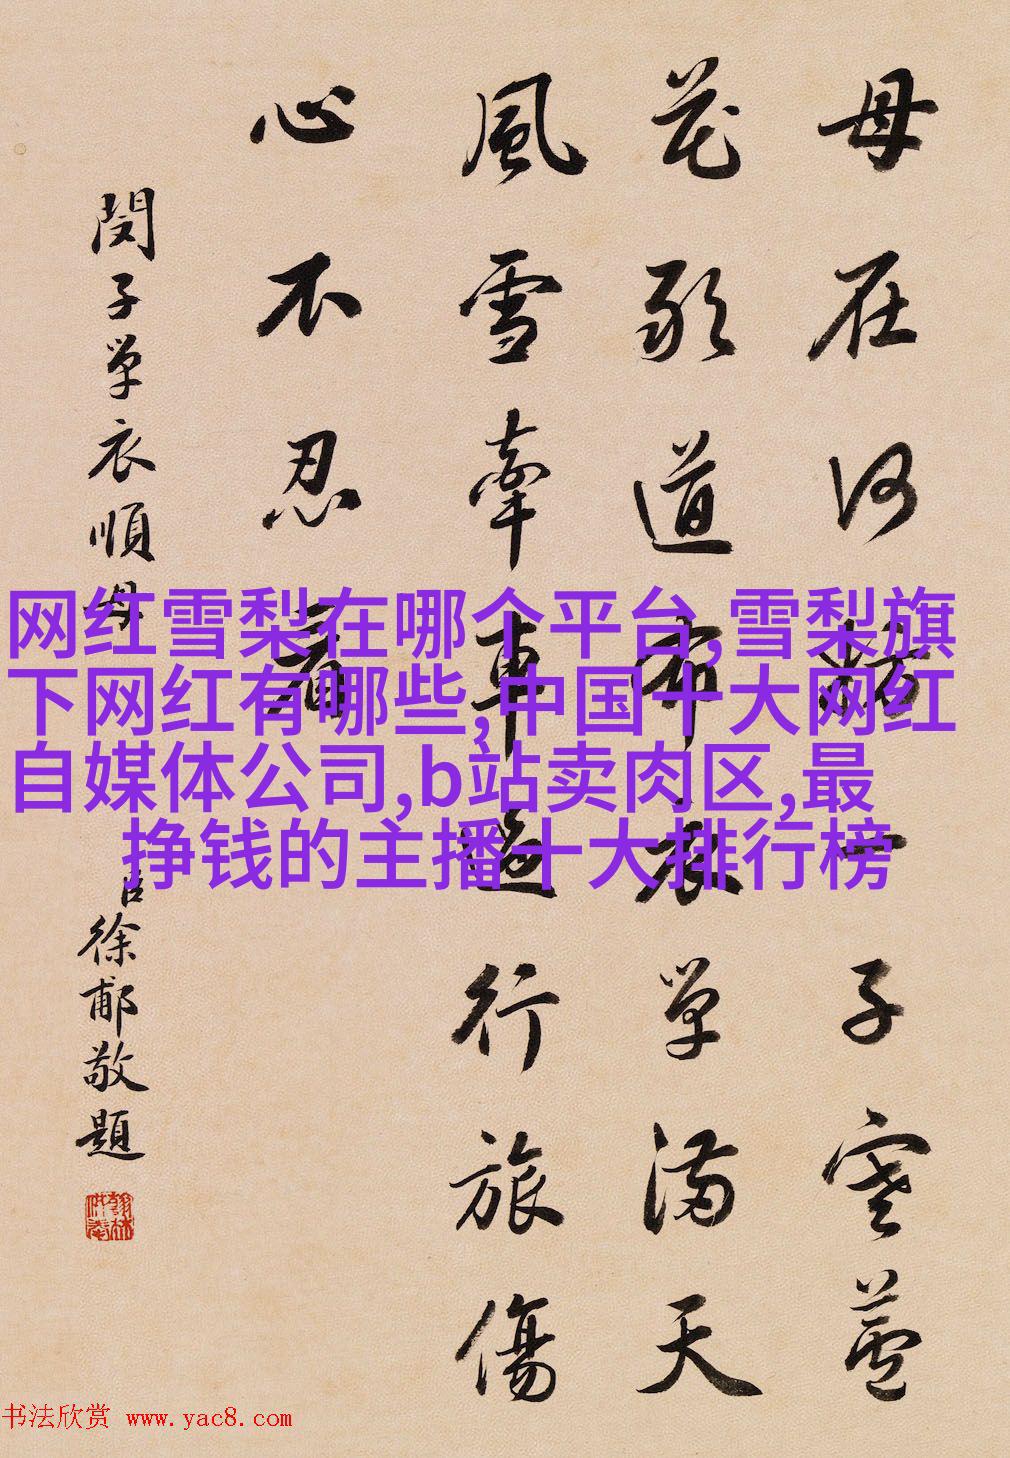 母在何妨一子寒芦
花飘道布衣单满天
風雪牽車這行旅傷
心不忍看
閔子单衣順母
臣徐郙敬題
网红雪梨在哪个平台,雪梨旗
下网红有哪些,中国十大网红
自媒体公司,b站卖肉区,最
挣钱的主播十大排行榜
书法欣赏 www.yac8.com